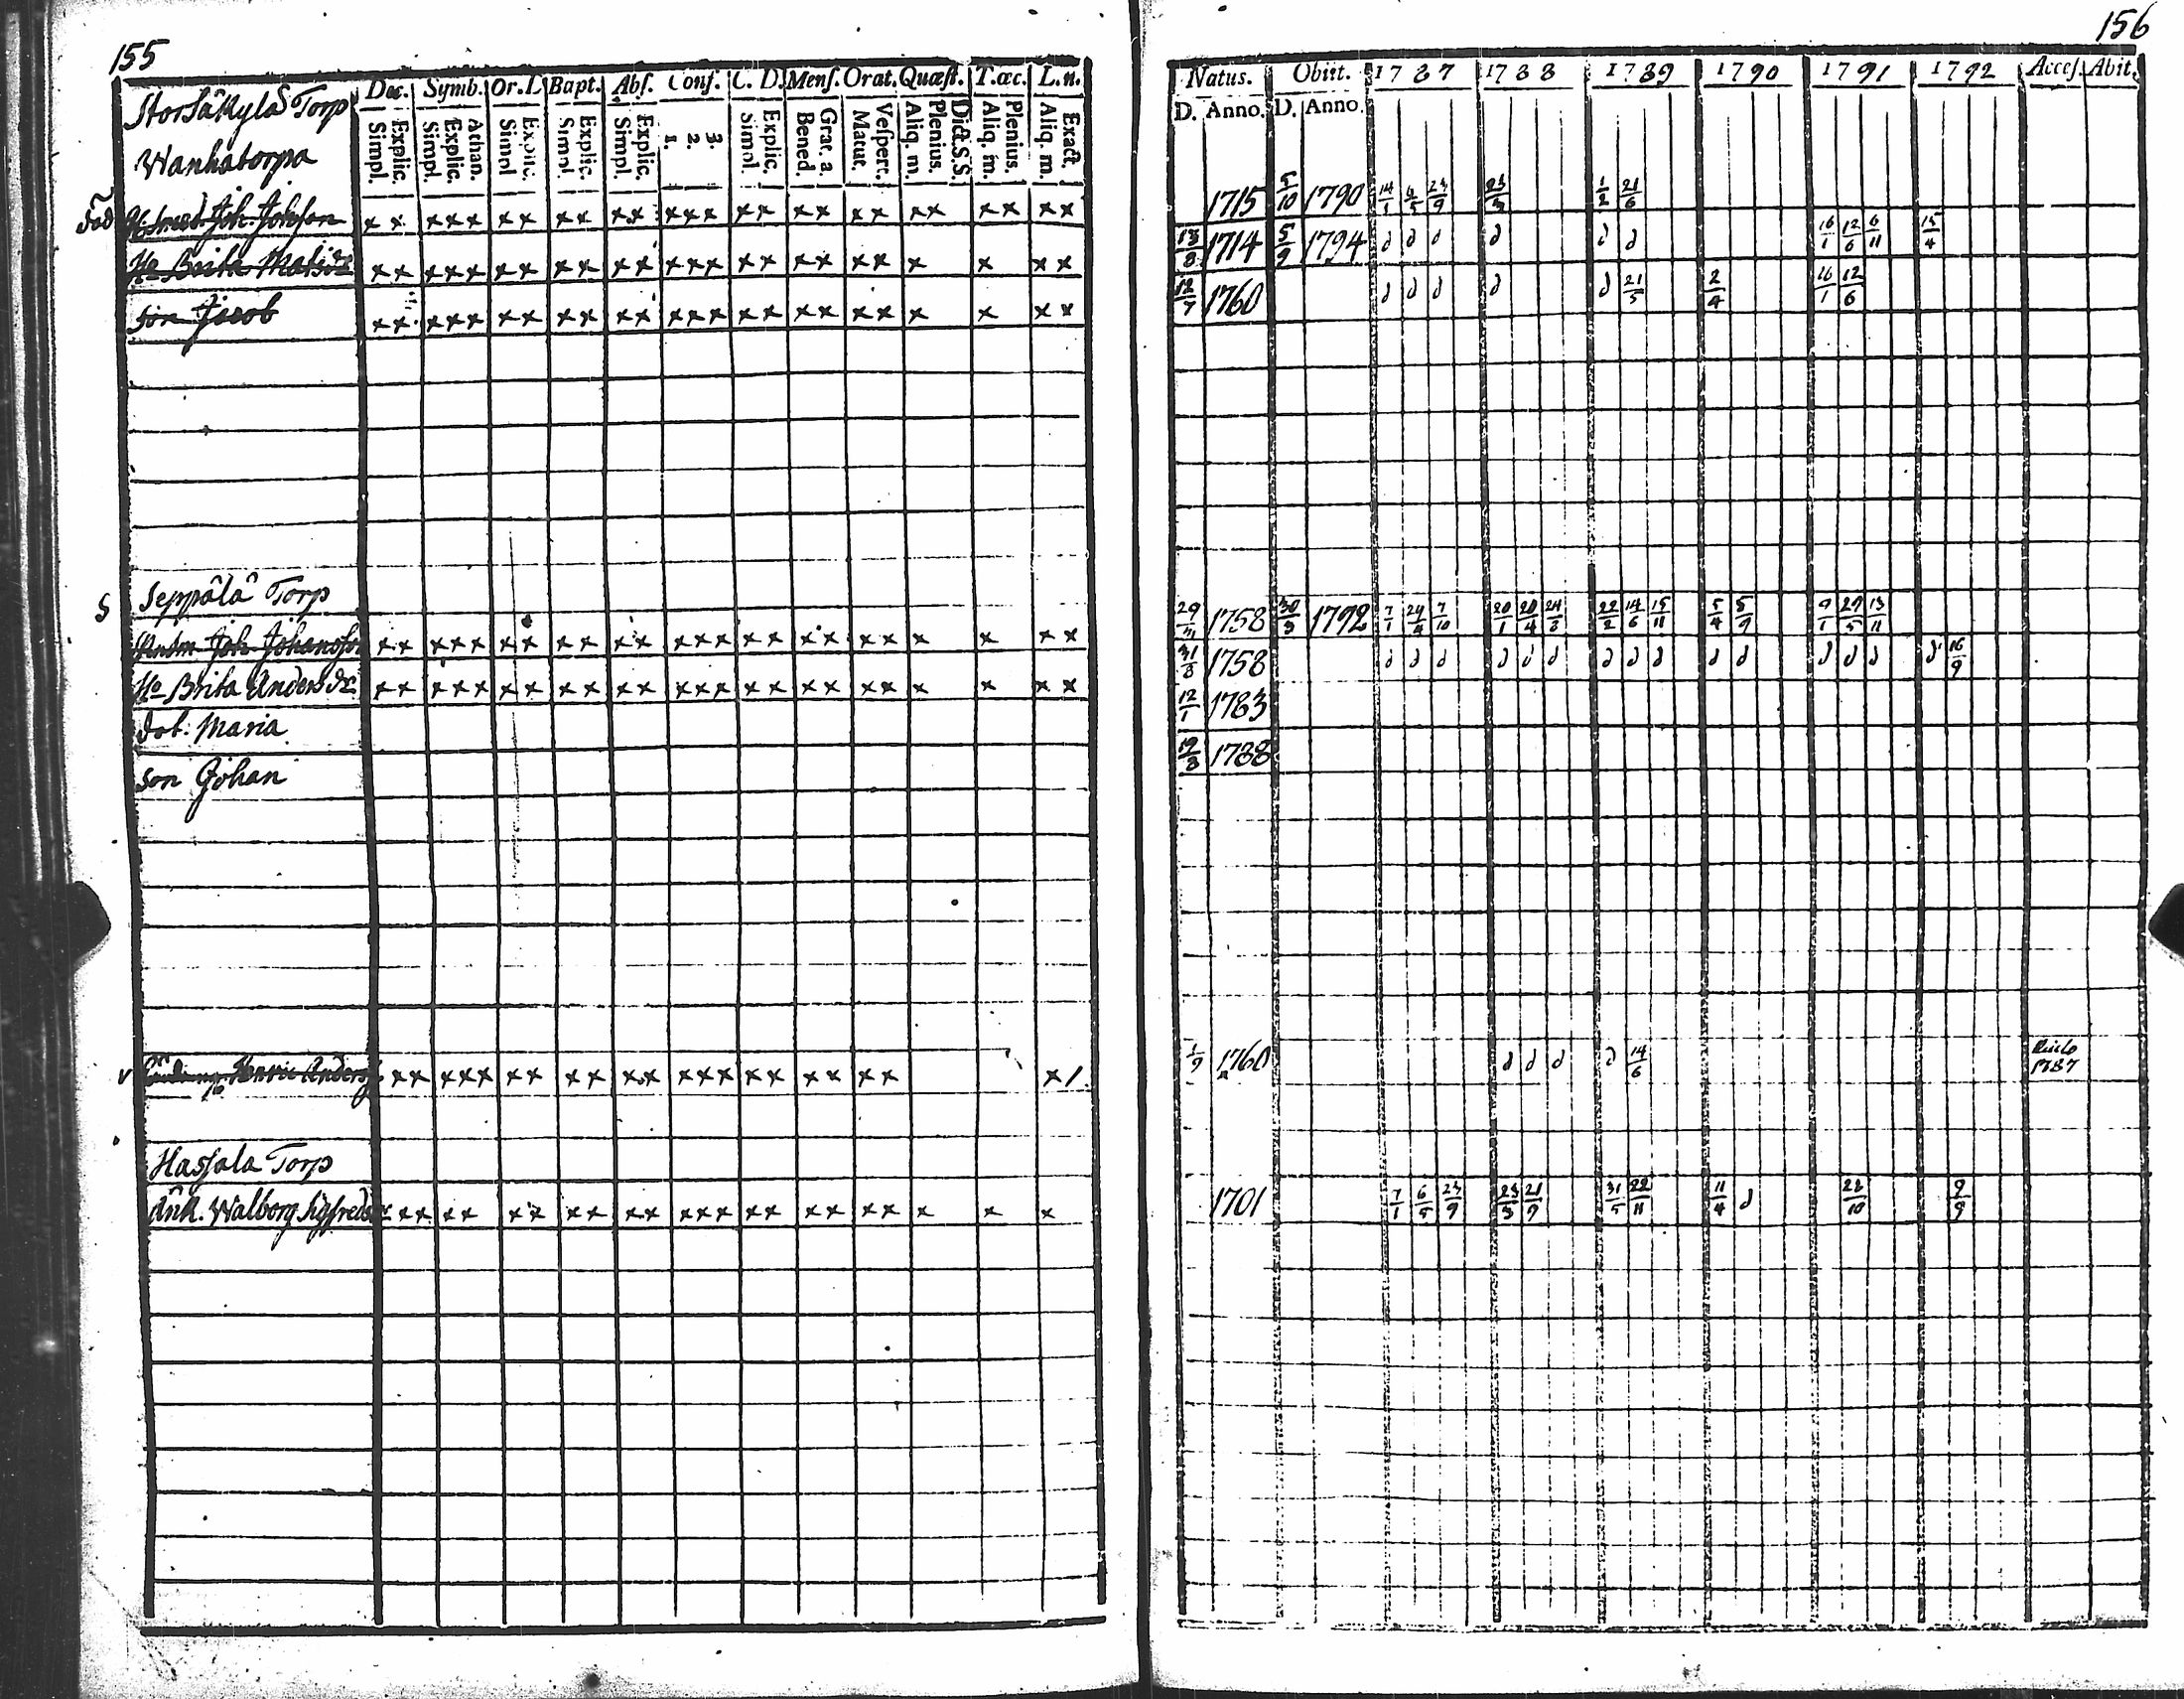 155
StorSäkylä Torp
Wanhatorpa
Dec. Symb. Or. D Bapt. Abs. Conf. C. D. Mens. Orat. Quæst. T. œc. L. n.
Simpl. Explic. Simpl. Explic. Athan. Simpl Explic. Simpl Explic. Simpl. Explic. 1. 2. 3. Simpl. Explic. Bened. Grat. a Matut. Vespert. Aliq. m. Plenius. Dict. S. S. Aliq. m. Plenius. Aliq. m. Exact.
Joh. Johnson x x xxx xx xx xx xxx xx xx xx xx xx xx
Ho Brita Matsdr xx xxx xx xx xx xxx xx xx xx x x xx
son Jacob xx xxx xx xx xx xxx xx xx xx x x xx
S Seppälä Torp
Joh Johansson xx xxx xx xx xx xxx xx xx xx x x xx
Ho Brita Anders dr xx xxx xx xx xx xxx xx xx xx x x xx
dot. Maria
son Johan
v Henric Anders xx xxx xx xx xx xxx xx xx xx x/
Hassala Torp
änk. Walborg Sigfreds xx xx xx xx xx xxx xx xx xx x x x
156
Natus. Obiit. 1787 1788 1789 1790 1791 1792 Acces. Abit.
D. Anno. D. Anno.
1715 5/10 1790 14/1 6/5 23/9 23/3 1/2 21/6
13/8 1714 5/9 1794 d d d d d d 16/1 12/6 6/11 15/4
12/7 1760 d d d d d 21/5 2/4 16/1 12/6
29/3 1758 30/3 1792 7/1 29/4 7/10 20/1 20/4 24/8 22/2 14/6 15/11 5/4 5/9 9/1 29/5 13/11
31/8 1758 d d d d d d d d d d d d d d d 16/9
12/1 1783
19/8 1788
1/9 1760 d d d d 14/6 1787
1701 7/1 6/5 23/9 23/3 21/9 31/5 22/11 11/4 d 22/10 9/9